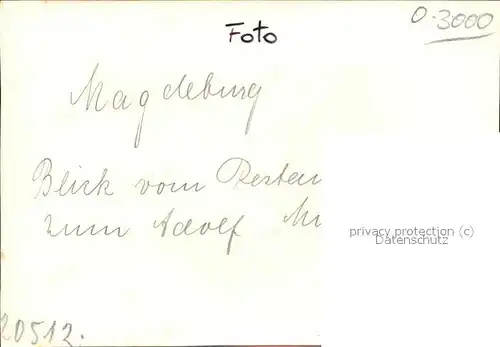 O-3000
Foto
Magdeburg
Blick vom Restau
zum Adolf Mi
privacy protection (c)
Datenschutz
20512.